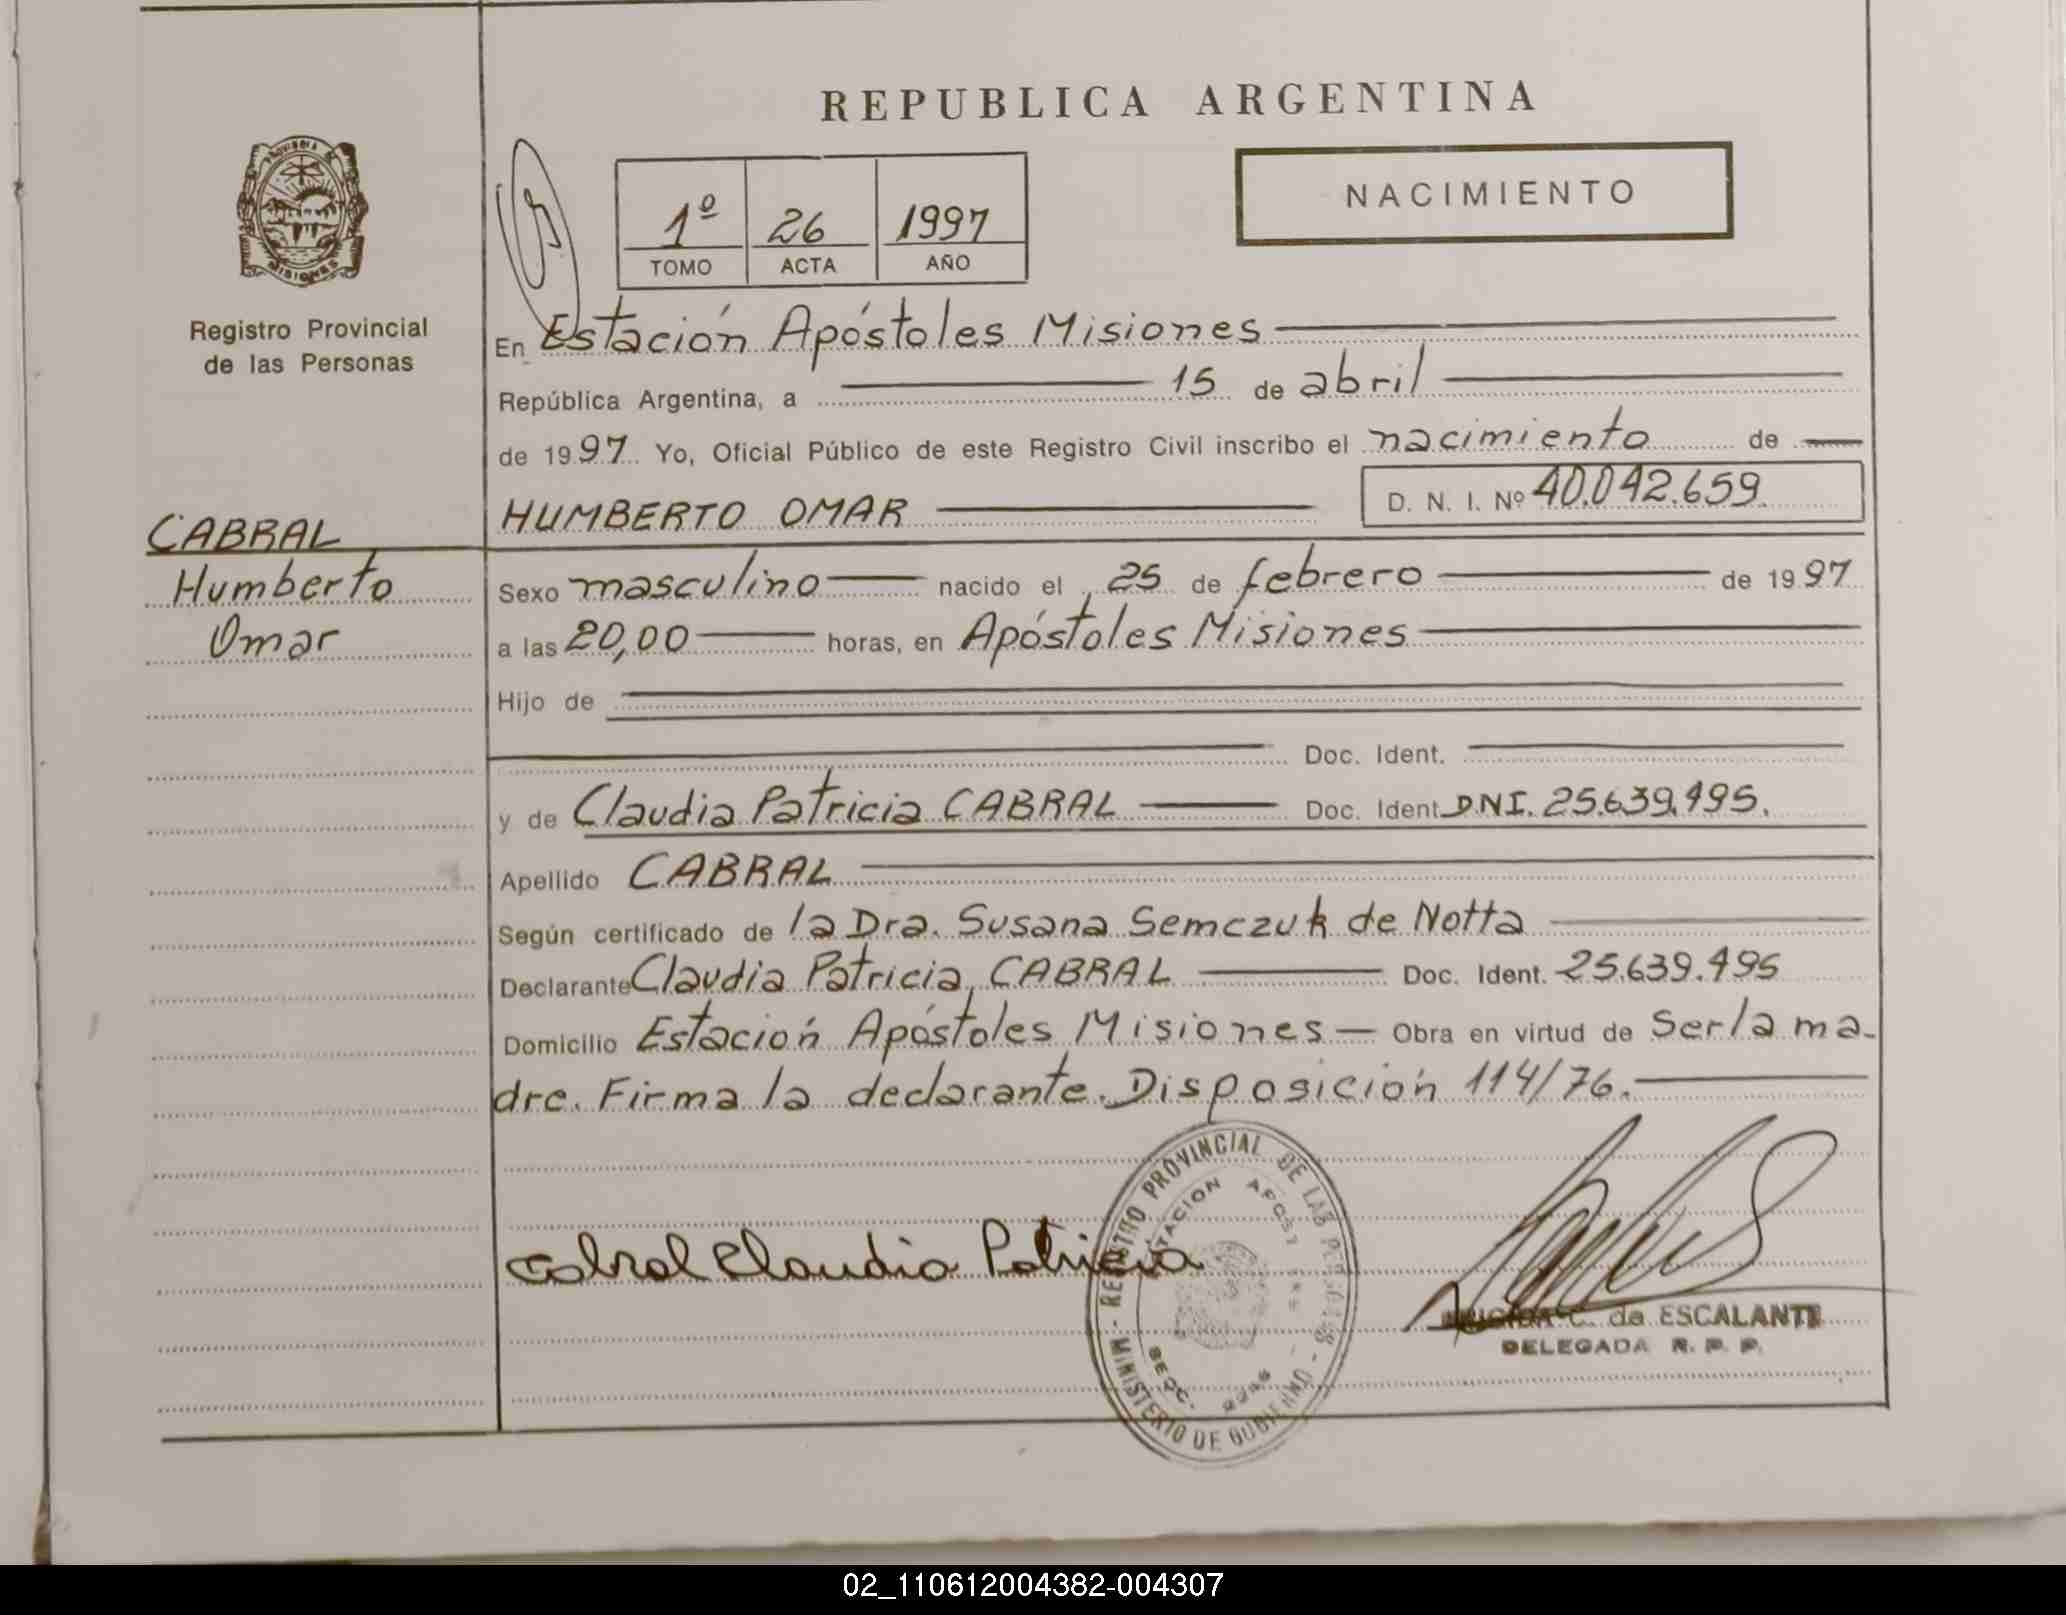 REPUBLICA ARGENTINA
PROVINCIA DE
MISIONES
Registro Provincial
de las Personas
1º 26 1997
TOMO ACTA AÑO
NACIMIENTO
En Estación Apóstoles Misiones
República Argentina, a 15 de abril
de 1997. Yo, Oficial Público de este Registro Civil inscribo el nacimiento de
HUMBERTO OMAR D. N. I. Nº 40.042.659.
CABRAL
Humberto
Omar
Sexo masculino nacido el 25 de febrero de 1997
a las 20,00 horas, en Apóstoles Misiones
Hijo de
Doc. Ident.
y de Claudia Patricia CABRAL Doc. Ident. DNI. 25.639.495.
Apellido CABRAL
Según certificado de la Dra. Susana Semczuk de Notta
Declarante Claudia Patricia CABRAL Doc. Ident. 25.639.495
Domicilio Estación Apóstoles Misiones — Obra en virtud de Ser la ma-
dre. Firma la declarante. Disposición 114/76.
Cabral Claudia Patricia
MINISTERIO DE GOBIERNO - REGISTRO PROVINCIAL DE LAS PERSONAS -
ESTACION APOSTOLES
SECC.
C. de ESCALANTE
DELEGADA R. P. P.
02_110612004382-004307